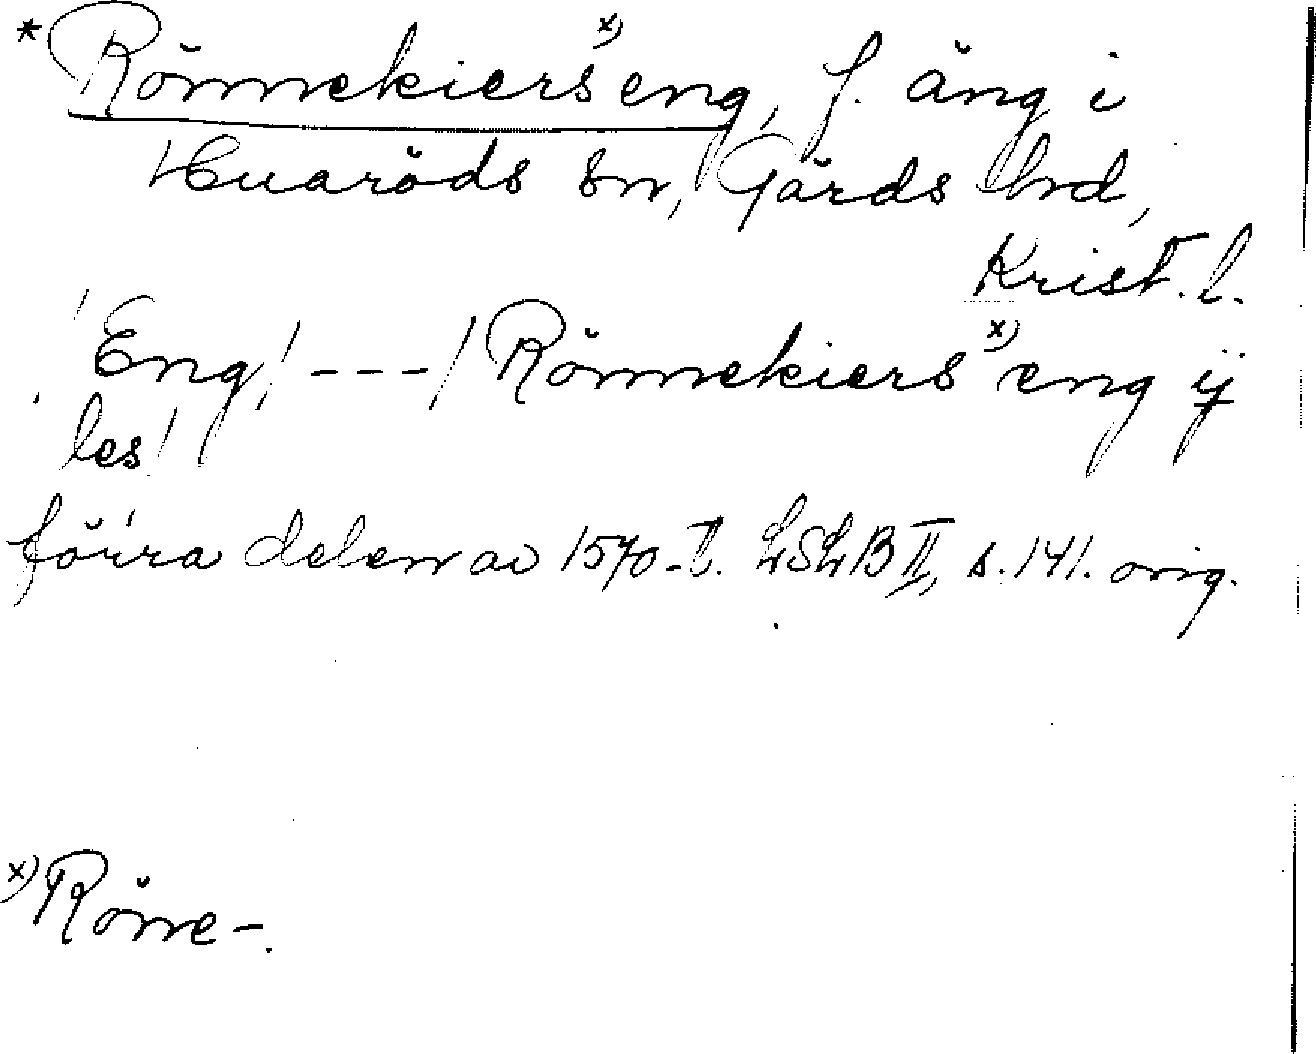 * Rönnekiers x) eng, f. äng i
Huaröds sn, Gärds hd,
Krist. l.
/Eng/ --- / Rönnekiers x) eng ij
les/
förra delen av 1570-t. LSLB II, s. 141. orig.
x) Röne-.